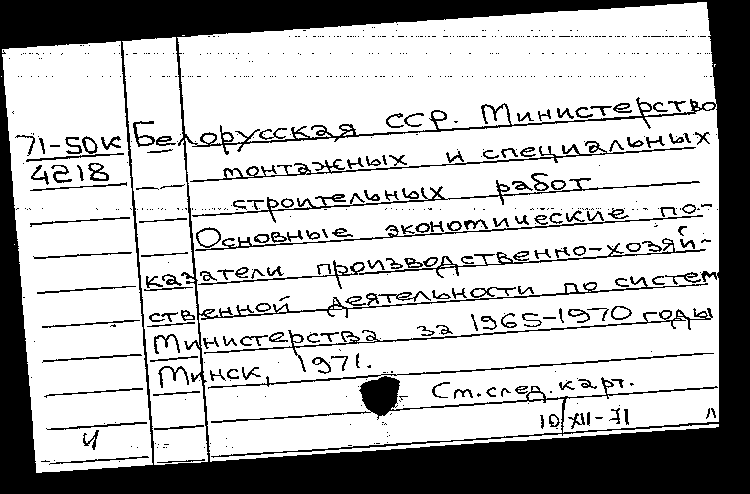 71-50к Белорусская ССР. Министерство
4218 монтажных и специальных
строительных работ
Основные экономические по-
казатели производственно-хозяй-
ственной деятельности по систем
Министерства за 1965-1970 годы
Минск, 1971.
См. след. карт.
10/XII-71